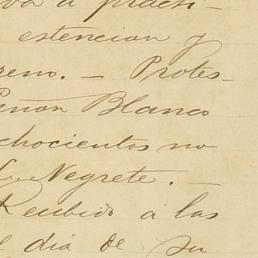 va á practi-
estencion y
reno. — Protes-
Peñon Blanco
chocientos no
L. Negrete. —
Recibido a las
el dia de su